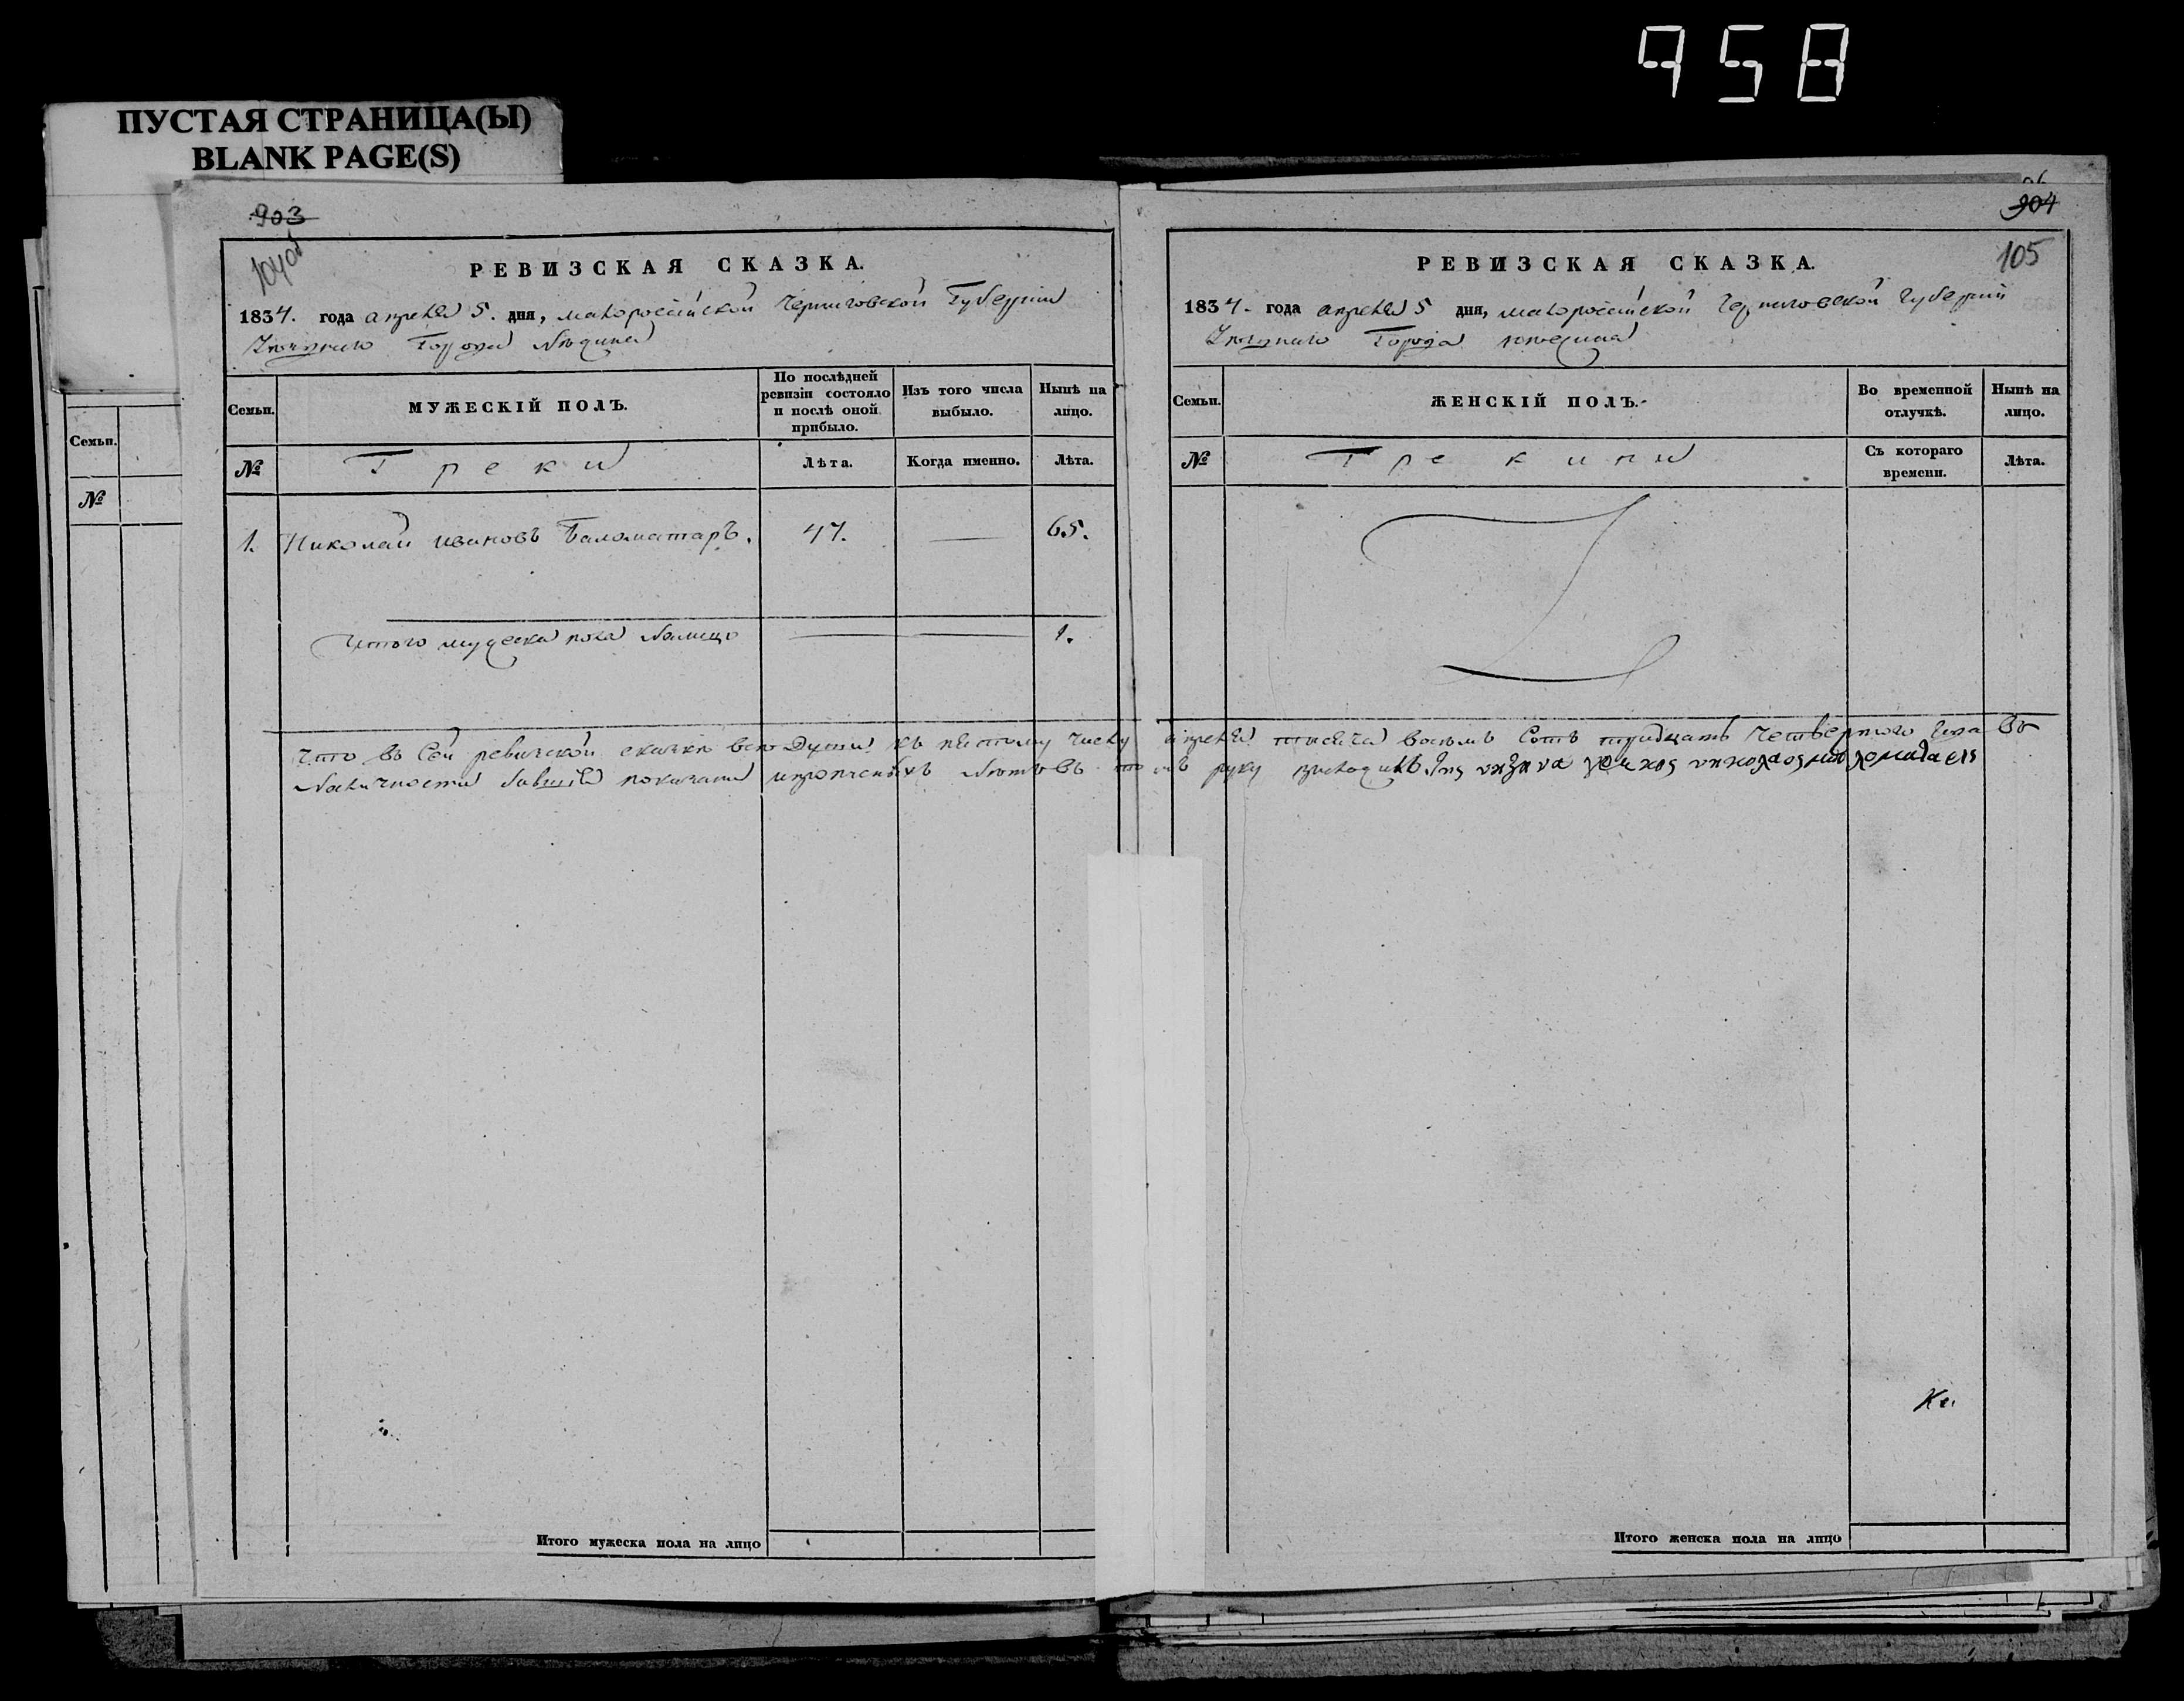 958
ПУСТАЯ СТРАНИЦА(Ы)
BLANK PAGE(S)
Семьи.
№
903
РЕВИЗСКАЯ СКАЗКА.
1834. года апреля 5. дня, малороссійской Черниговской Губерніи
Города Нѣжина
Семьи.
МУЖЕСКІЙ ПОЛЪ.
По послѣдней ревизіи состояло и послѣ оной прибыло.
Изъ того числа выбыло.
Нынѣ на лицо.
№
Греки
Лѣта.
Когда именно.
Лѣта.
1. Николай ивановъ 47. — 65.
Итого мужеска пола налицо — — 1.
Что въ Сей ревизской скаскѣ всѣ Души къ пятому числу
наличности показаны
Итого мужеска пола на лицо
904
105
РЕВИЗСКАЯ СКАЗКА.
1834. года апреля 5 дня, малороссійской Черниговской Губерніи
Города нежина
Семьи.
ЖЕНСКІЙ ПОЛЪ.
Во временной отлучкѣ.
Нынѣ на лицо.
№
Грекини
Съ котораго времени.
Лѣта.
апреля тысяча восемь Сотъ тридцать Четвертого Года Въ
руку
Итого женска пола на лицо